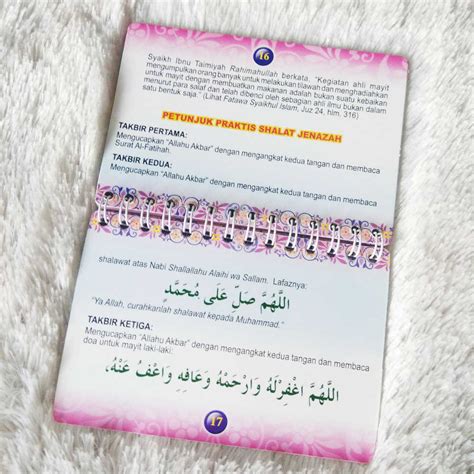 16
Syaikh Ibnu Taimiyah Rahimahullah berkata. "Kegiatan ahli mayit
mengumpulkan orang banyak untuk melakukan tilawah dan menghadiahkan
untuk mayit dengan membuatkan makanan adalah bukan suatu kebaikan
menurut para salaf dan telah dibenci oleh sebagian ahli ilmu bukan dalam
satu bentuk saja." (Lihat Fatawa Syaikhul Islam, Juz 24, hlm, 316)
PETUNJUK PRAKTIS SHALAT JENAZAH
TAKBIR PERTAMA:
Mengucapkan "Allahu Akbar" dengan mengangkat kedua tangan dan membaca
Surat Al-Fatihah.
TAKBIR KEDUA:
Mengucapkan "Allahu Akbar" dengan mengangkat kedua tangan dan membaca
shalawat atas Nabi Shallallahu Alaihi wa Sallam. Lafaznya:
اَللَّهُمَّ صَلِّ عَلَى مُحَمَّدٍ
"Ya Allah, curahkanlah shalawat kepada Muhammad."
TAKBIR KETIGA:
Mengucapkan "Allahu Akbar" dengan mengangkat kedua tangan dan membaca
doa untuk mayit laki-laki:
اَللَّهُمَّ اغْفِرْلَهُ وَارْحَمْهُ وَعَافِهِ وَاعْفُ عَنْهُ،
17